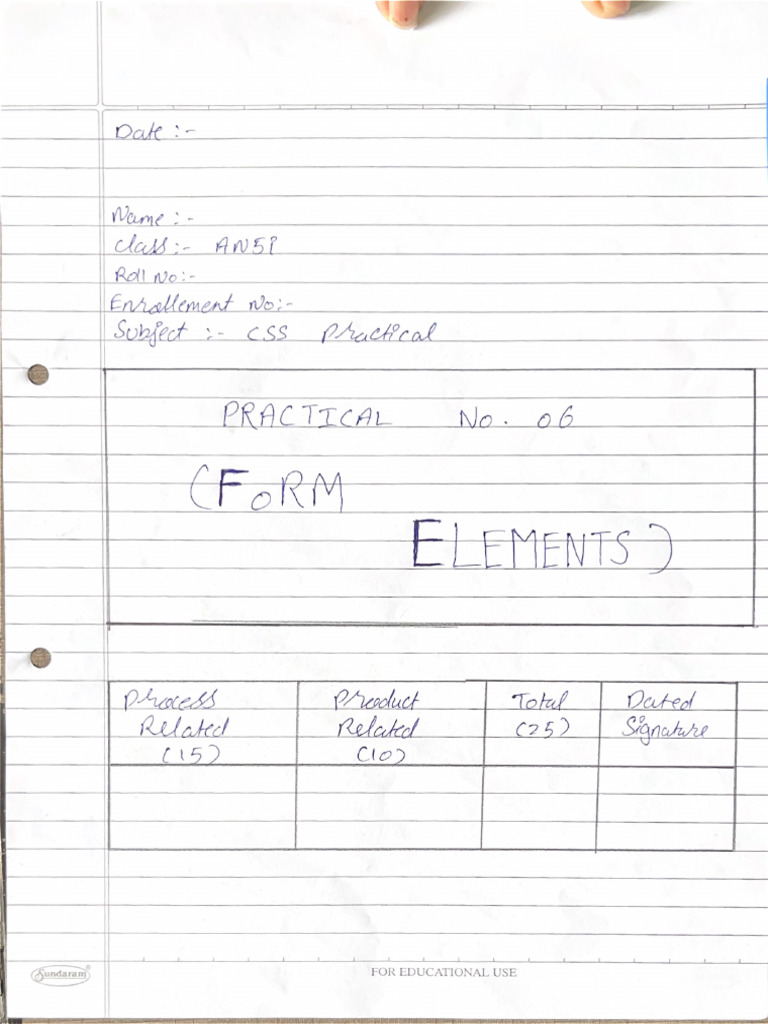 Date :-
Name :-
Class :- AN5I
Roll No:-
Enrollement No:-
Subject :- CSS Practical
PRACTICAL No. 06
(FoRM
ELEMENTS)
Process Related (15)
Product Related (10)
Total (25)
Dated Signature
Sundaram®
FOR EDUCATIONAL USE